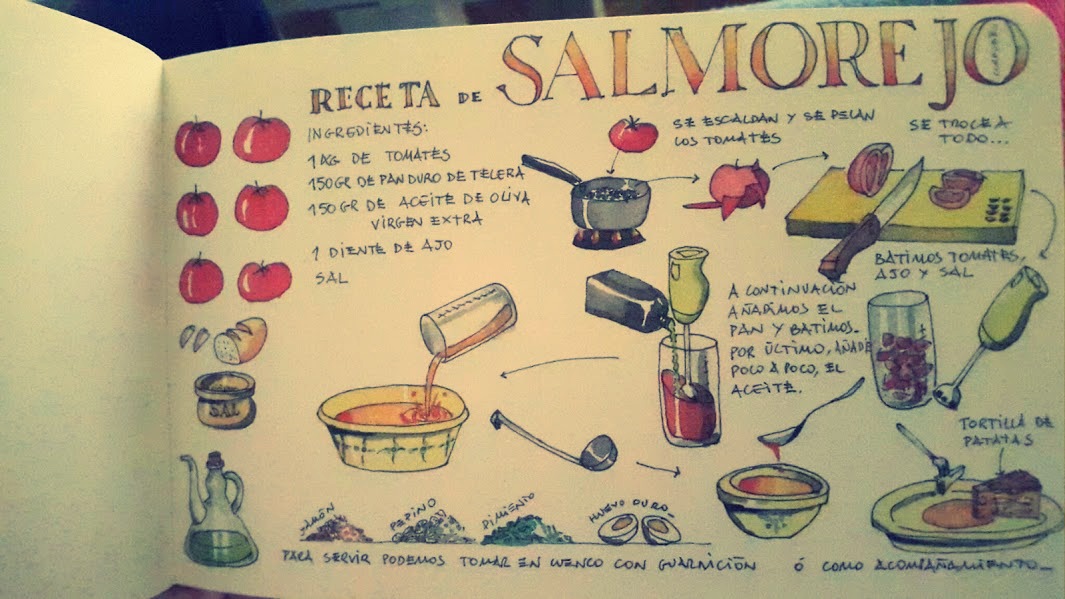 RECETA DE SALMOREJO
INGREDIENTES:
1 KG DE TOMATES
150 GR DE PAN DURO DE TELERA
150 GR DE ACEITE DE OLIVA
VIRGEN EXTRA
1 DIENTE DE AJO
SAL
SE ESCALDAN Y SE PELAN
LOS TOMATES
SE TROCEA
TODO...
BATIMOS TOMATES,
AJO Y SAL
A CONTINUACIÓN
AÑADIMOS EL
PAN Y BATIMOS.
POR ÚLTIMO, AÑADE
POCO A POCO, EL
ACEITE.
SAL
TORTILLA DE
PATATAS
JAMÓN
PEPINO
PIMIENTO
HUEVO DURO...
PARA SERVIR PODEMOS TOMAR EN CUENCO CON GUARNICIÓN Ó COMO ACOMPAÑAMIENTO...